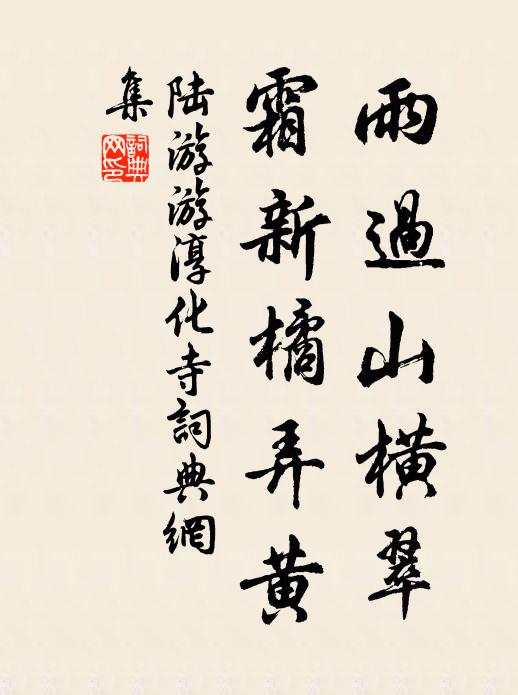 雨過山橫翠
霜新橘弄黄
陸游游淳化寺詞典網
集
詞典
网印